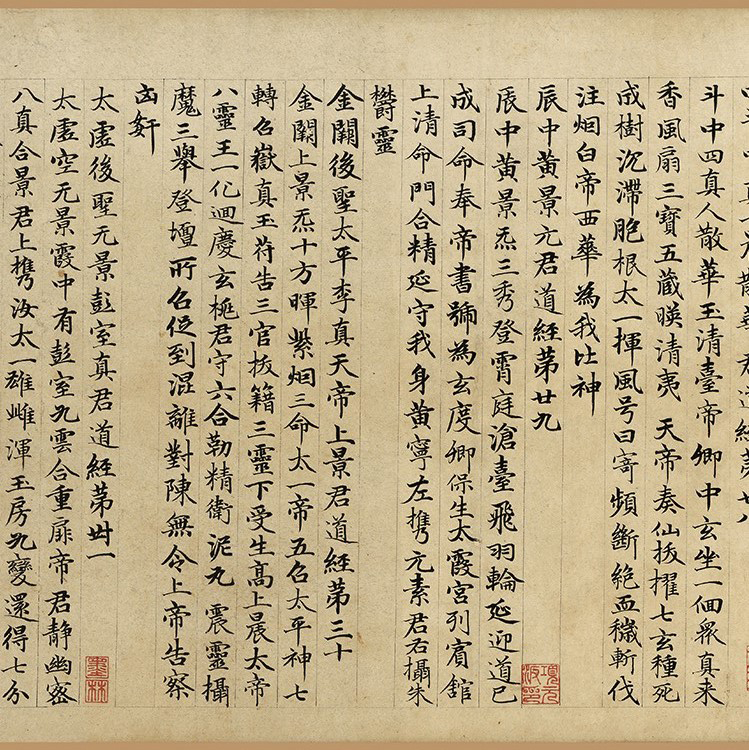 散華君道經第廿八
斗中四真人散華玉清臺帝卿中玄坐一個眾真来
香風扇三寶五藏暎清夷 天帝奏仙拔擢七玄種死
成樹沉滯胞根太一揮風号曰寄頻斷絕血穢斬伐
注烟白帝西華為我比神
辰中黄景元君道經第廿九
辰中黄景炁三秀登霄庭滄臺飛羽輪延迎道已
成司命奉帝書號為玄度卿保生太霞宮列賓舘
上清命門合精延守我身黄寧左携元素君右攝朱
欝靈
金闕後聖太平李真天帝上景君道經第三十
金闕上景炁十方暉紫烟三命太一帝五召太平神七
轉召嶽真玉符告三官拔籍三靈下受生高上晨太帝
八靈王一化迴慶玄君守六合勒精衛泥丸 震靈攝
魔三舉登壇所召促到混離對陳無令上帝告察
凶奸
太虛後聖无景彭室真君道經第卅一
太虛空无景霞中有彭室九雲合重扉帝君静幽密
八真合景君上携汝太一雄雌渾玉房九變還得七分
項元汴印
墨林